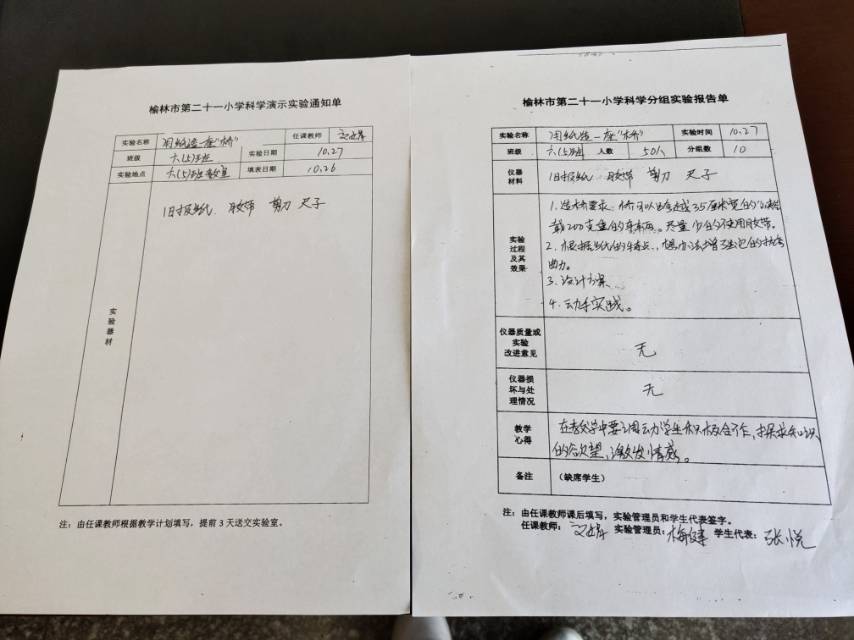 榆林市第二十一小学科学演示实验通知单
实验名称 用纸造一座"桥" 任课教师
班级 六(5)班 实验日期 10.27
实验地点 六(5)班教室 填表日期 10.26
实验器材 旧报纸 胶带 剪刀 尺子
注：由任课教师根据教学计划填写，提前3天送交实验室。
榆林市第二十一小学科学分组实验报告单
实验名称 用纸造一座"桥" 实验时间 10.27
班级 六(5)班 人数 50人 分组数 10
仪器材料 旧报纸 胶带 剪刀 尺子
实验过程及其效果
1.造桥要求：桥可以跨越35厘米宽的
载200克重的车辆。尽量少的使用胶带。
2.根据纸的特点，想办法增强它的抗弯
曲力。
3.设计方案
4.动手实践。
仪器质量或实验改进意见 无
仪器损坏与处理情况 无
教学心得 在教学中要调动学生积极合作，探求知识
的欲望，激发情感。
备注 (缺席学生)
注：由任课教师课后填写，实验管理员和学生代表签字。
任课教师： 实验管理员： 学生代表：张悦